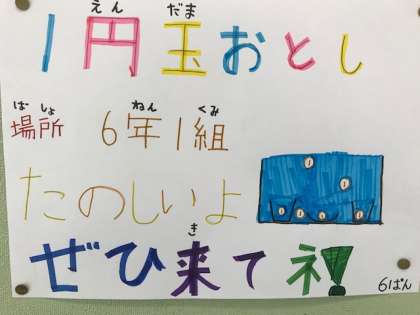 えん だま
1円玉おとし
ばしょ ねん くみ
場所 6年1組
たのしいよ
き
ぜひ来てネ!
6ぱん